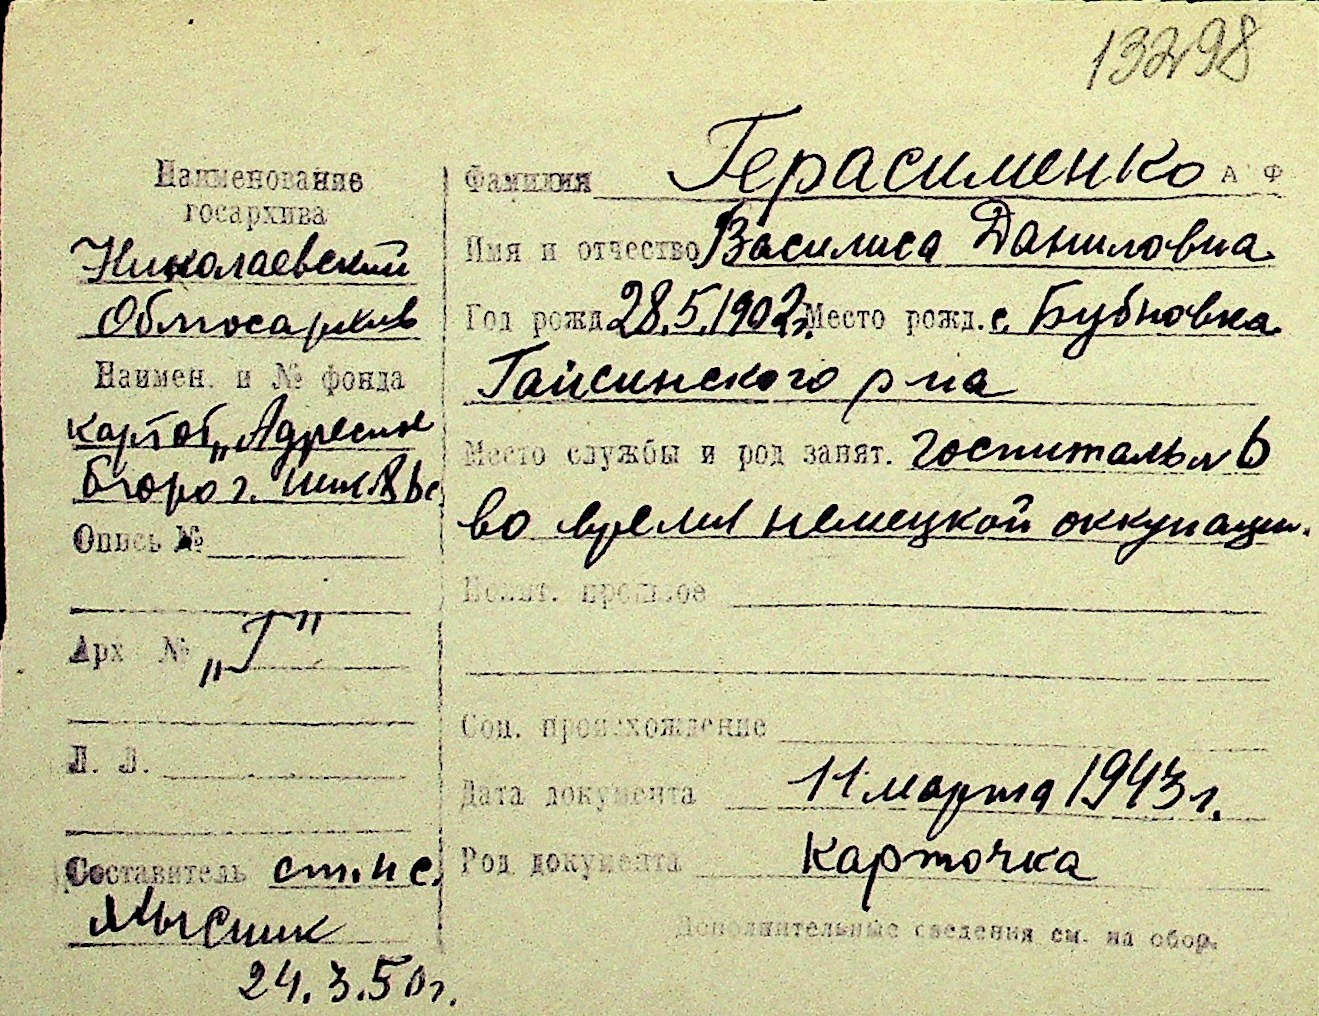 13298
Наименование
госархива
Николаевский
Облгосархив
Наимен. и № фонда
картот. „Адресное
бюро г.
Опись №
Арх № „Г"
Л. Л.
Составитель ст. н с.
24.3.50г.
Фамилия Герасименко А Ф
Имя и отчество Василиса Даниловна
Год рожд. 28.5.1902г. Место рожд. с. Бубновка
Гайсинского р-на
Место службы и род занят. госпиталь
во время немецкой оккупации.
Полит. прошлое
Соц. происхождение
Дата документа 11 марта 1943 г.
Род документа Карточка
Дополнительные сведения см. на обор.